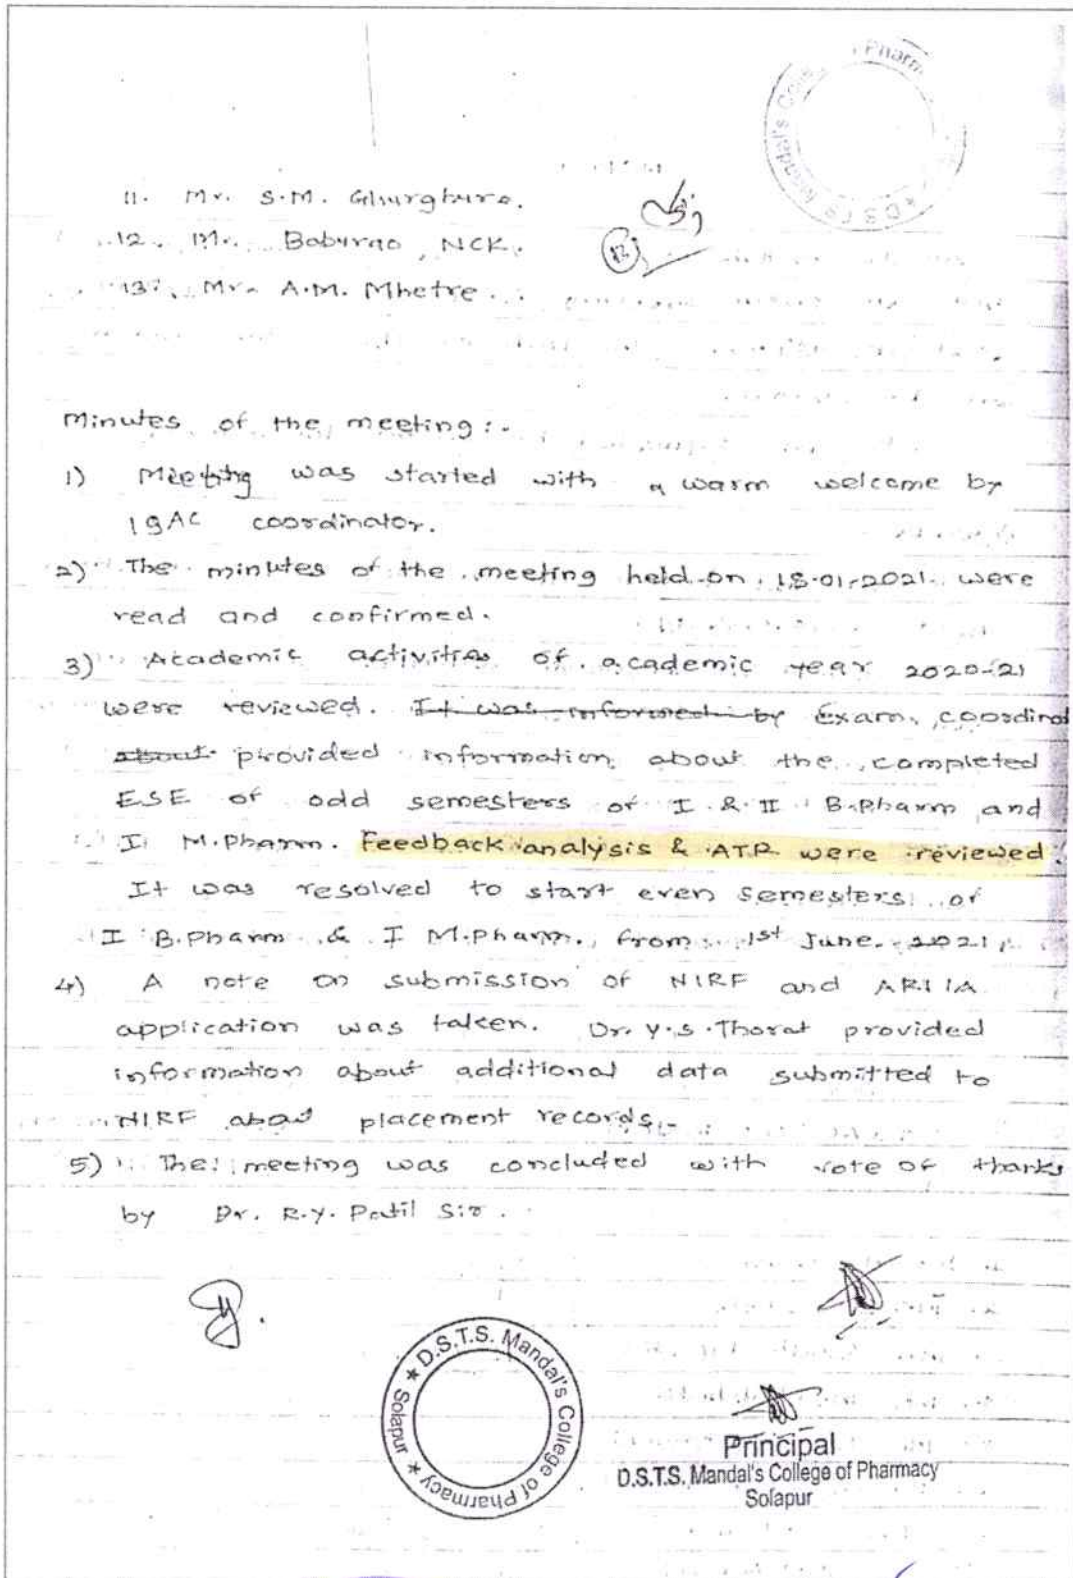 11. Mr. S.M. Ghurghure.
12. Mr. Baburao NCK.
13. Mr. A.M. Mhetre.
Minutes of the meeting:-
1) Meeting was started with a warm welcome by
IQAC coordinator.
2) The minutes of the meeting held on 18-01-2021 were
read and confirmed.
3) Academic activities of academic year 2020-21
were reviewed. It was informed by Exam. coordinat
about provided information about the completed
ESE of odd semesters of I & II B.Pharm and
I M.Pharm. Feedback analysis & ATR were reviewed.
It was resolved to start even semesters of
I B.Pharm & I M.Pharm. from 1st June. 2021.
4) A note on submission of NIRF and ARIIA
application was taken. Dr. Y.S. Thorat provided
information about additional data submitted to
NIRF about placement records.
5) The meeting was concluded with vote of thanks
by Dr. R.Y. Patil Sir.
D.S.T.S. Mandal's College of Pharmacy ★ Solapur ★
Principal
D.S.T.S. Mandal's College of Pharmacy
Solapur